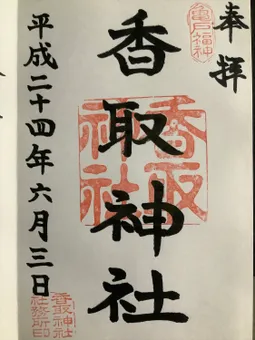 奉拝
亀戸福神
香取神社
香取神社
平成二十四年六月三日
香取神社
社務所印